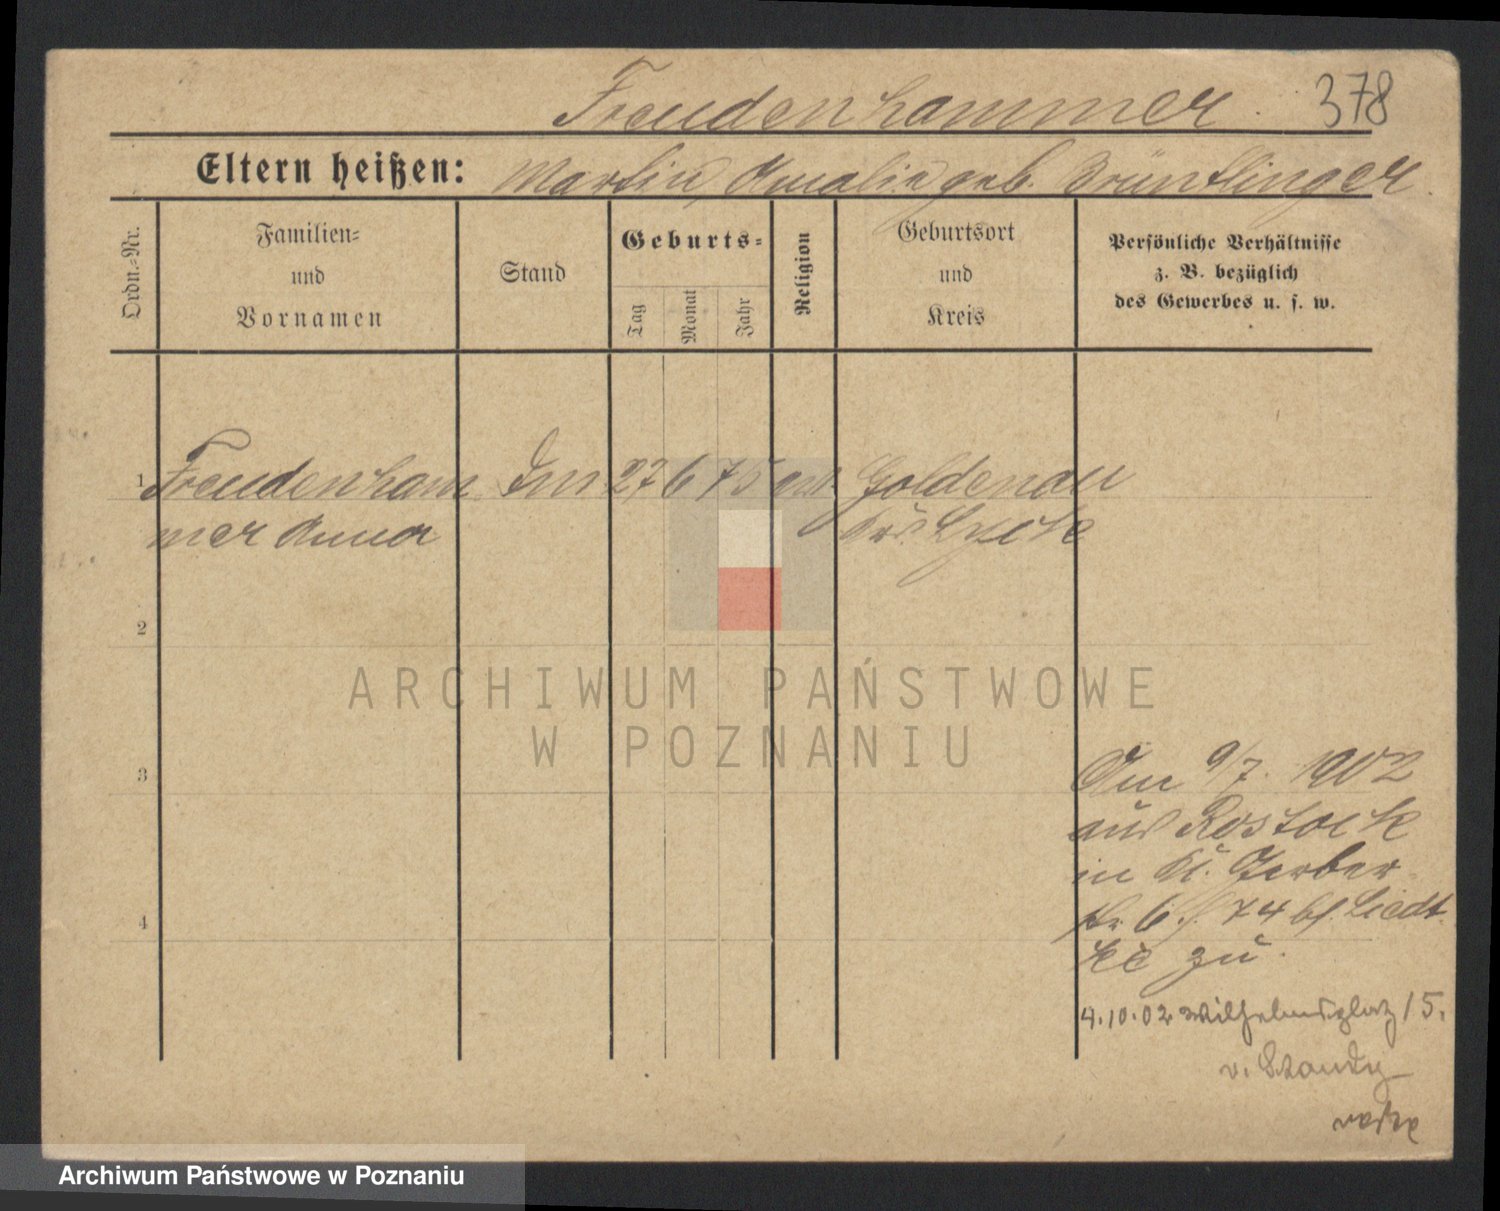 Freudenhammer. 378
Eltern heißen: Martin, Amalie geb. Brüntlinger.
Ordn.=Nr.
Familien=
und
Vornamen
Stand
Geburts=
Tag
Monat
Jahr
Religion
Geburtsort
und
Kreis
Persönliche Verhältnisse
z. B. bezüglich
des Gewerbes u. s. w.
1 Freudenham 27 6 75 Goldenau
mer Anna Krs. Lyck
2
ARCHIWUM PAŃSTWOWE
W POZNANIU
3
Am 9/7. 1902
aus Rostock
in Kl. Gerber
str 6 74 bf. Liedt
ke zu.
4
4.10.02 Wilhelmsplatz 15.
v.
Archiwum Państwowe w Poznaniu